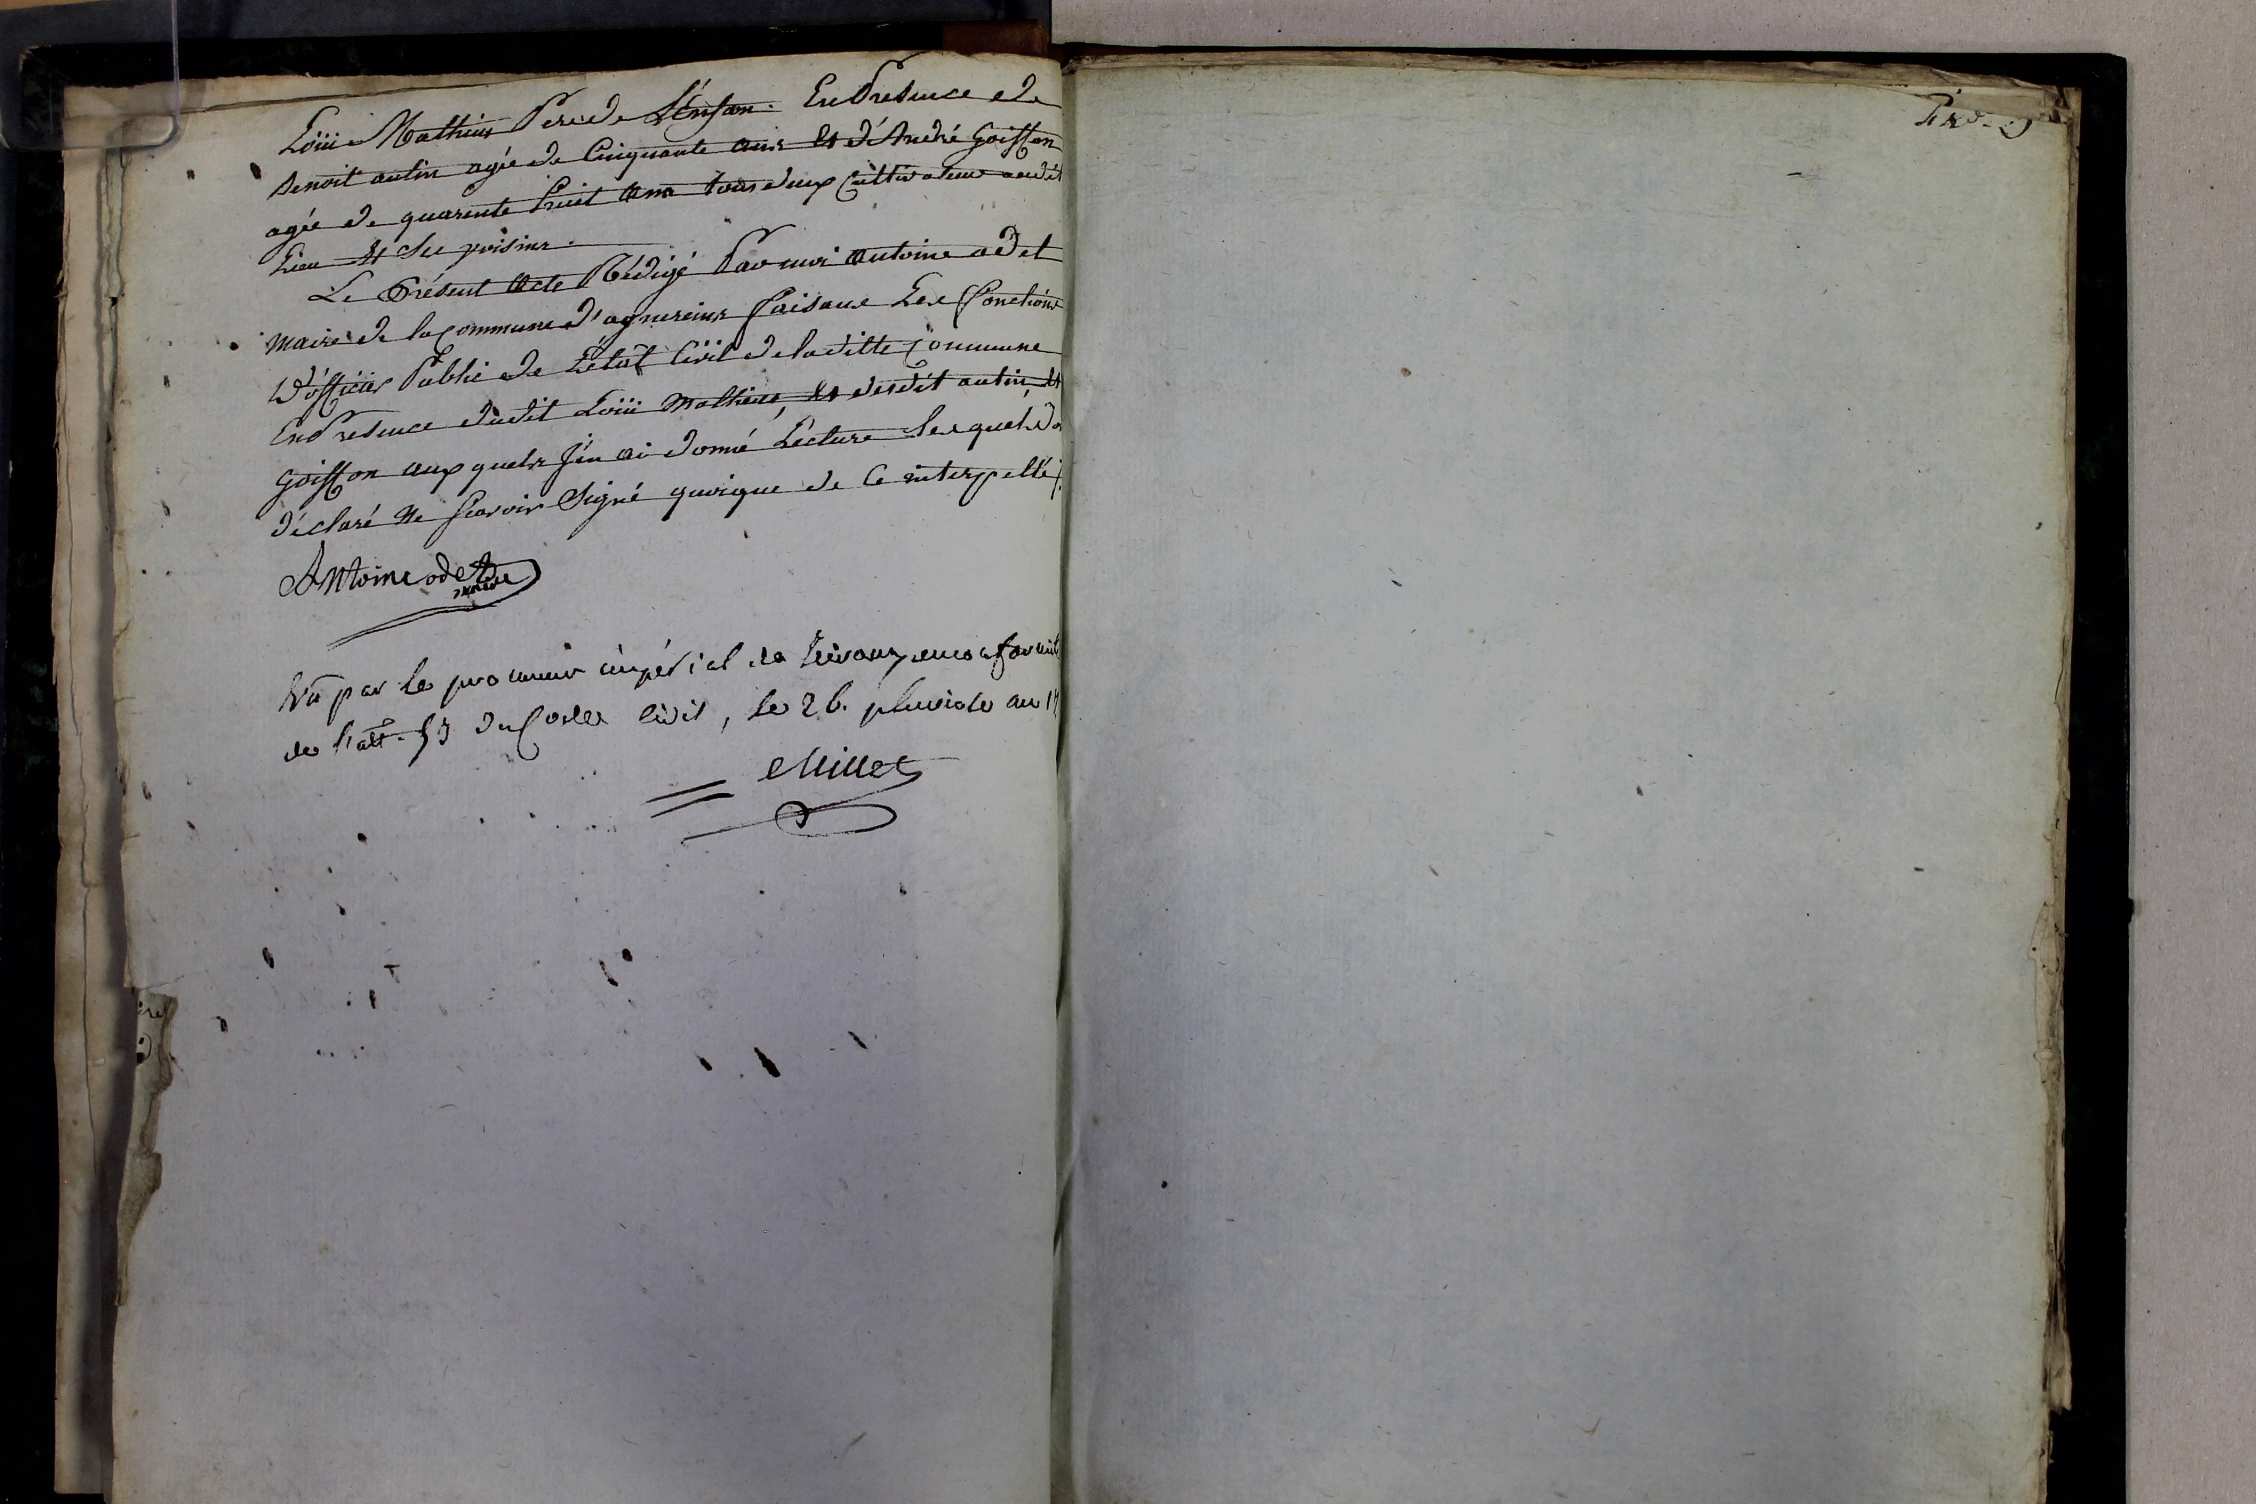 Loüi Mathieu Pere de L'énfant. En Presence de
Benoit autin agée de Cinquante ans et d'André Goisson
agée de quarente huit ans tous deux Cultivateur audit
Lieu et Ses voisins.
Le Présent acte Rédigé Par moi antoine odet
maire de la commune d'agnereins faisant Les fonctions
D'officier Public de L'état Civil de la ditte commune
En Presence dudit Loüi Mathieu, et desdit autin, et
Goisson aux quels j'en ai donné Lecture les quels
déclaré ne scavoir Signé quoique de Ce interpellé
Antoine odet
maire
Vu par le procureur impérial de Trévoux, en conformité
de l'art. 53 du Code Civil, le 26. pluviose an 13
Millet